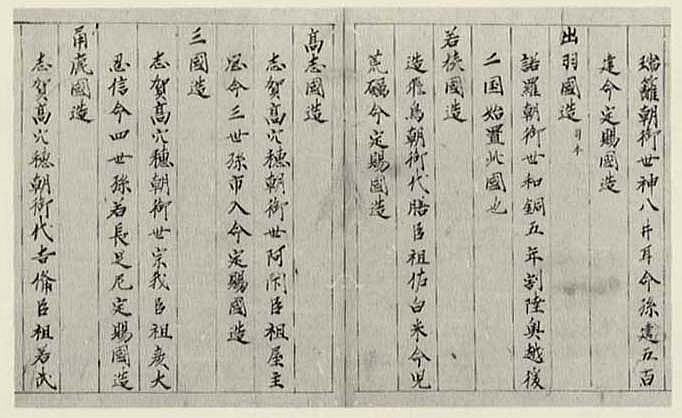 瑞籬朝御世神八井耳命孫建五百
建命定賜國造
出羽國造
諾羅朝御世和銅五年割陸奥越後
二国始置此國也
若狭國造
造飛鳥朝御代膳臣祖佐白米命児
荒礪命定賜國造
高志國造
志賀髙穴穂朝御世阿閇臣祖屋主
思命三世孫市入命定賜國造
三國造
志賀髙穴穂朝御世宗我臣祖彦太
忍信命四世孫若長足尼定賜國造
角鹿國造
志賀髙穴穂朝御代吉備臣祖若武